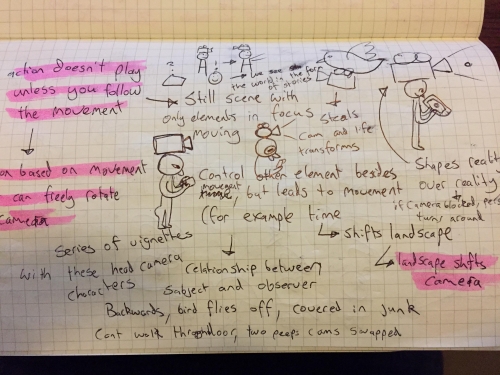 action doesn't play
unless you follow
the movement
we see
the world in the form
of stories
Still scene with
only elements in focus
moving
Steals
Cam and life
transforms
on based on movement
can freely rotate
camera
Control other element besides
movement
, but leads to movement
(for example time
Shapes reality
over reality
if camera blocked, pers
turns around
shifts landscape
landscape shfts
camera
Series of vignettes
with these head camera
characters
relationship between
subject and observer
Backwards, bird flies off, covered in junk
Cant walk through door, two peeps cams swapped